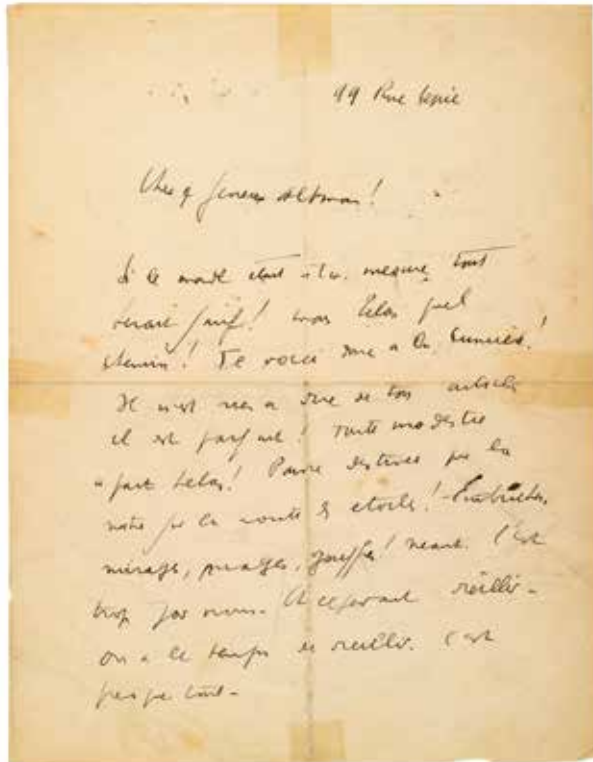 99 Rue Lepic
Cher & généreux Altman!
Si le monde était à ta mesure tout
serait mais hélas quel
chemin! Te voici donc à la
Il n'est rien à dire de ton article
il est parfait! Toute modestie
à part hélas! Pauvre destinée que la
notre sur la route des étoiles!
mirages, nuages, gouffres! néant. C'est
trop pour nous. vieillir -
on a le temps de vieillir. C'est
presque tout -